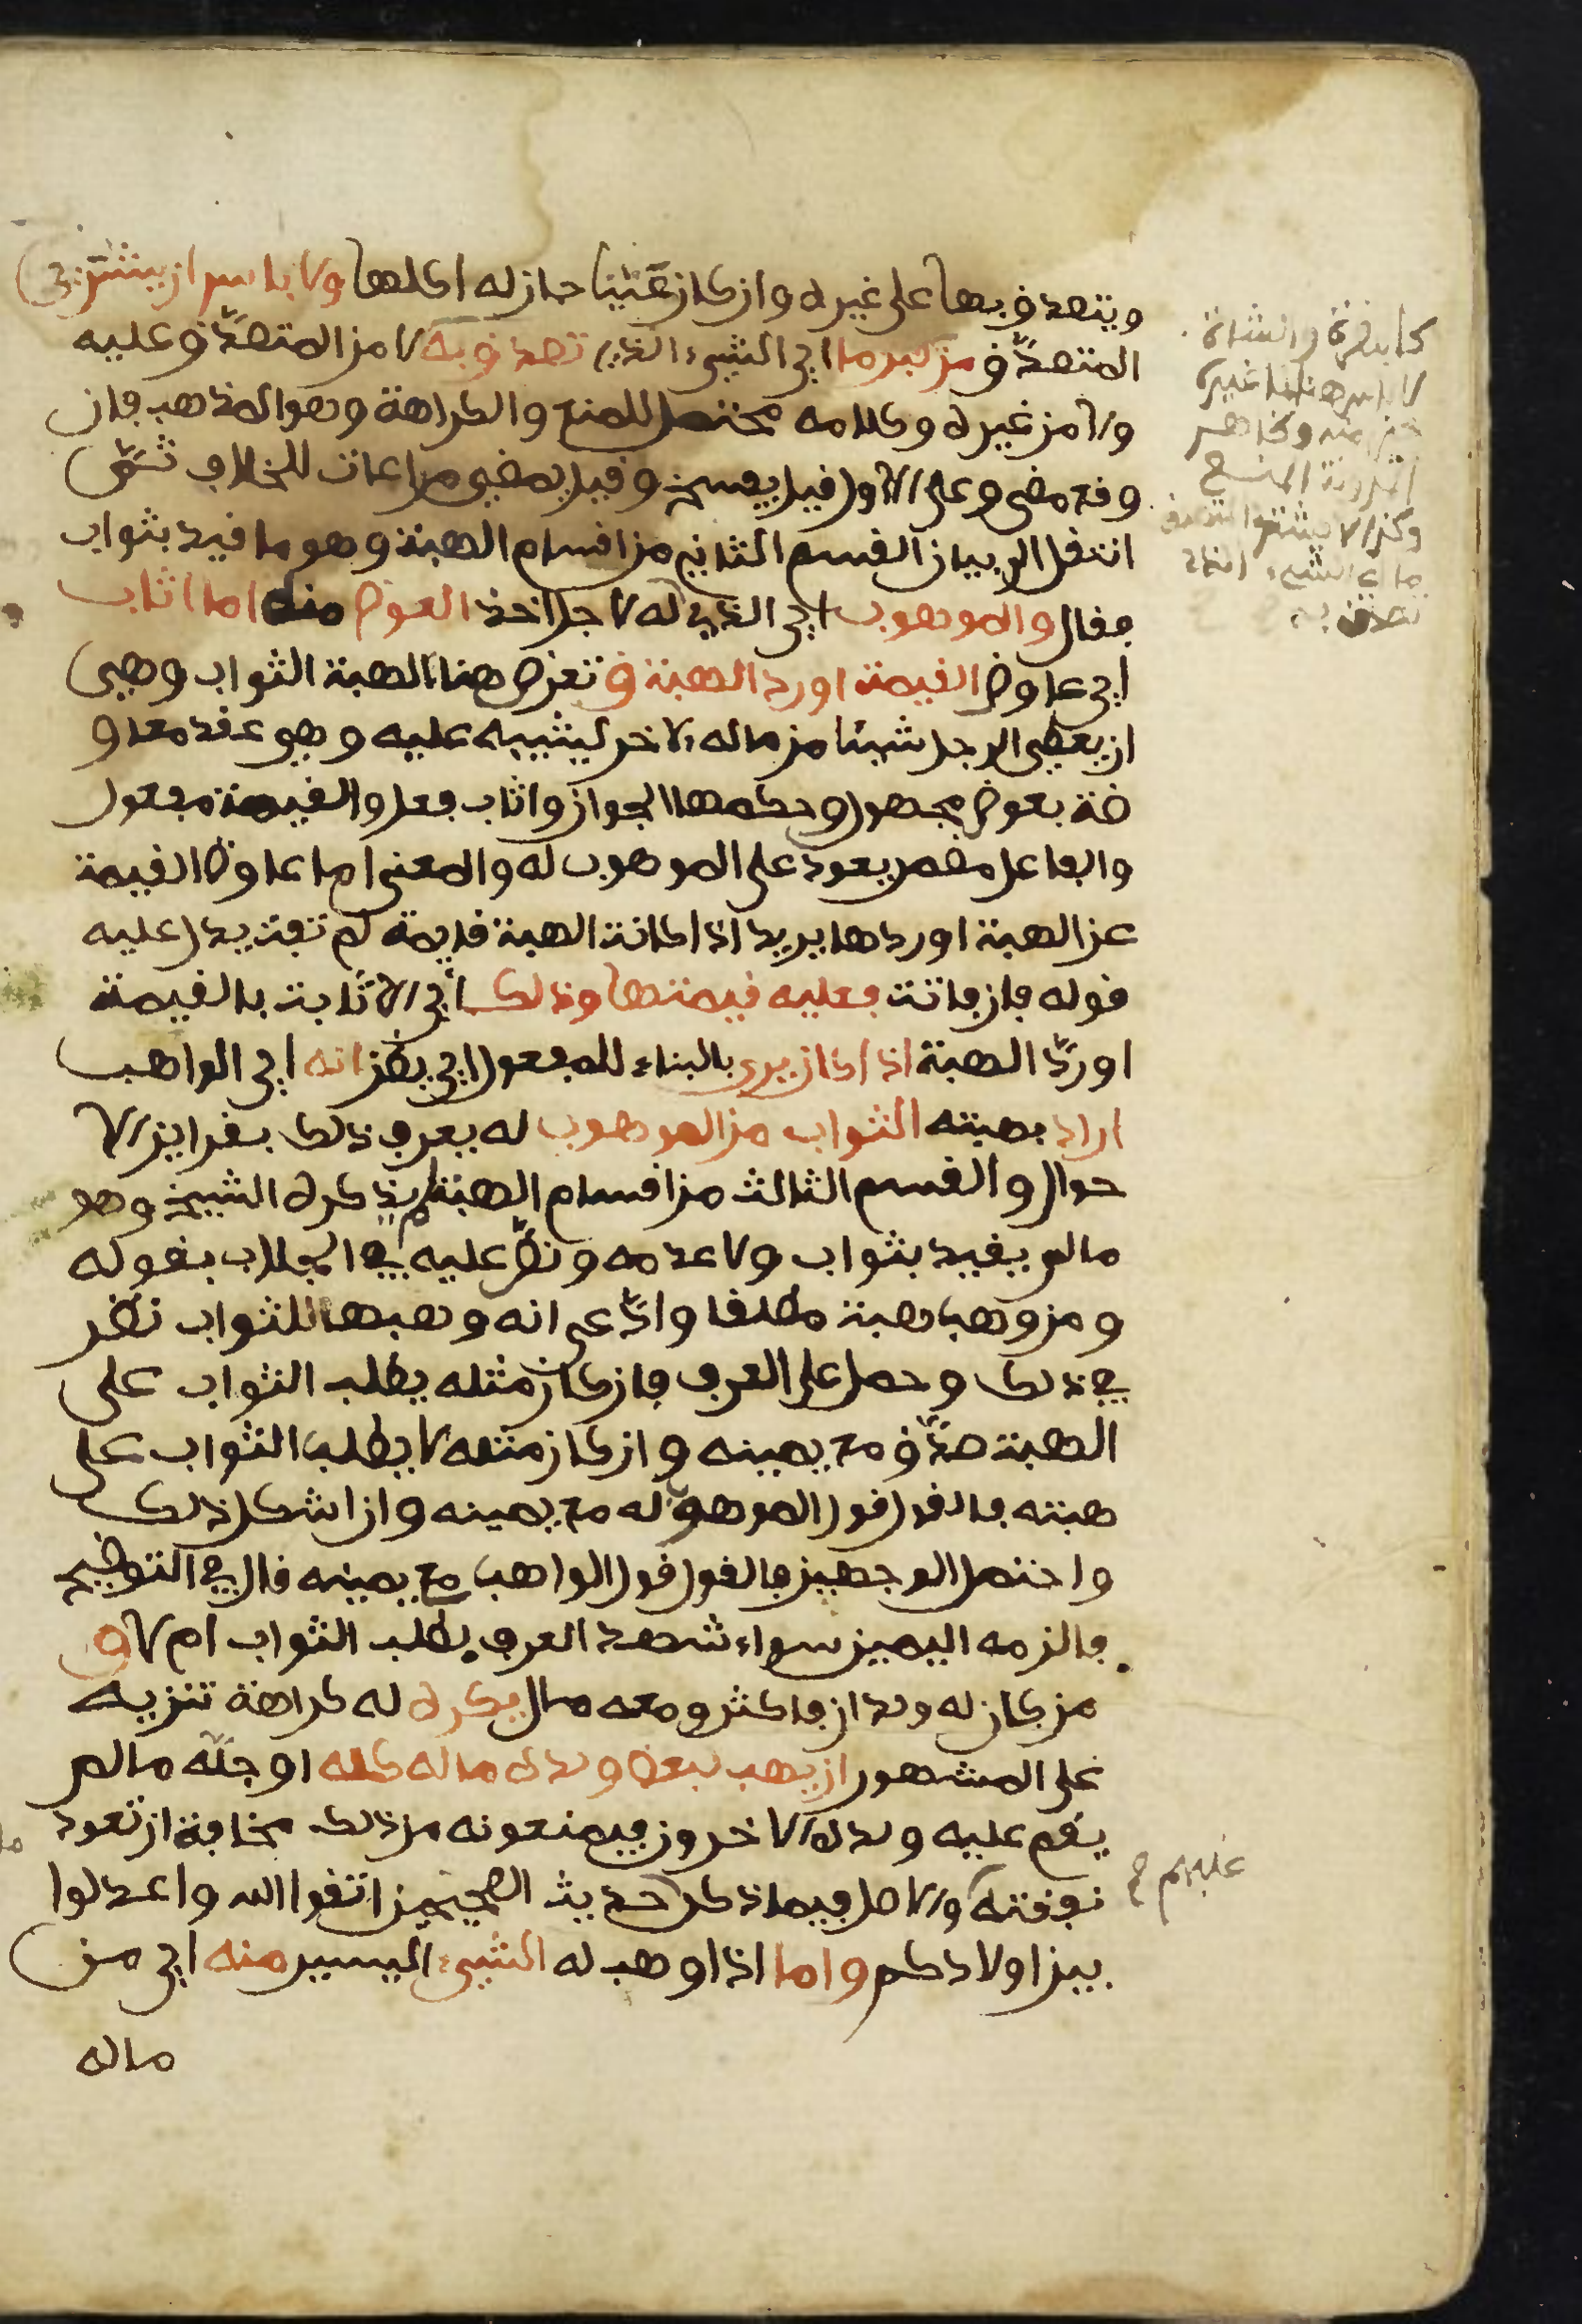 ويتصدق بها على غيره وان كان عَتبيا جاز له اكلها ولا باس ان يشتري
المتصدّق من كبر ما اي الشيء الذي تصدق به لا من المتصدّق عليه
ولا من غيره وكلامه محتمل للمنع والكراهة وهو المذهب فان
وقع مضى وعلى الاول قيل يفسخ وقيل يمضي مراعات للخلاف ثم
انتقل الى بيان القسم الثاني من اقسام الهبة وهو ما قيد بثواب
فقال والموهوب اي الذي له لاجل اخذ العوض منه اما اثاب
اي عاوض القيمة او رد الهبة ق تعرض هنا الهبة الثواب وهي
ان يعطي الرجل شيئا من ماله لاخر ليثيبه عليه وهو عقد معاو
ضة بعوض مجهول وحكمها الجواز واثاب فعل والقيمة مفعول
والفاعل مضمر يعود على الموهوب له والمعنى اما عاوض القيمة
عن الهبة او ردها يريد اذا كانت الهبة قايمة لم تفت يدل عليه
قوله فان فاتت فعليه قيمتها وذلك أي الاثابت بالقيمة
او ردّ الهبة اذا كان يرى بالبناء للمفعول اي يظن انه اي الواهب
اراد بهبته الثواب من الموهوب له يعرف ذلك بقراين الا
حوال والقسم الثالث من اقسام الهبة لم يذكره الشيخ وهو
مالم يقيد بثواب ولا عدمه ونصّ عليه في الجلاب بقوله
ومن وهب هبة مطلقا وادّعى انه وهبها للثواب نظر
في ذلك وحمل على العرف فان كان مثله يطلب الثواب على
الهبة صدّق مع يمينه وان كان مثله لا يطلب الثواب على
هبته فالقول قول الموهوب له مع يمينه وان اشكل ذلك
واحتمل الوجهين فالقول قول الواهب مع يمينه قال في التوضيح
فالزمه اليمين سواء شهد العرف بطلب الثواب ام لا و
من كان له ولدان فاكثر ومعه مال يكره له كراهة تنزيه
على المشهور ان يهب لبعض ولده ماله كله او جلّه مالم
يقم عليه ولده الاخرون فيمنعونه من ذلك مخافة ان تعود
نفقته والاصل فيما ذكر حديث الصحيحين اتقوا الله واعدلوا
بين اولادكم واما اذا وهب له الشيء اليسير منه اي من
ماله
كالبقرة والشاة
لا باس هنا
المدونة
وكذا لا يشتر
الشيء الذي
تصدق به
عليهم